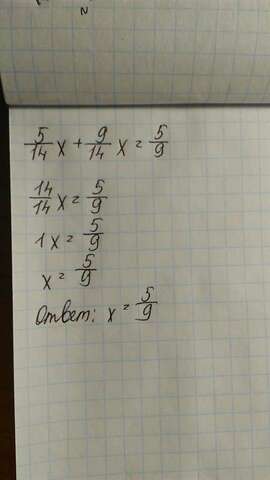 5/14 x + 9/14 x = 5/9
14/14 x = 5/9
1x = 5/9
x = 5/9
Ответ: x = 5/9